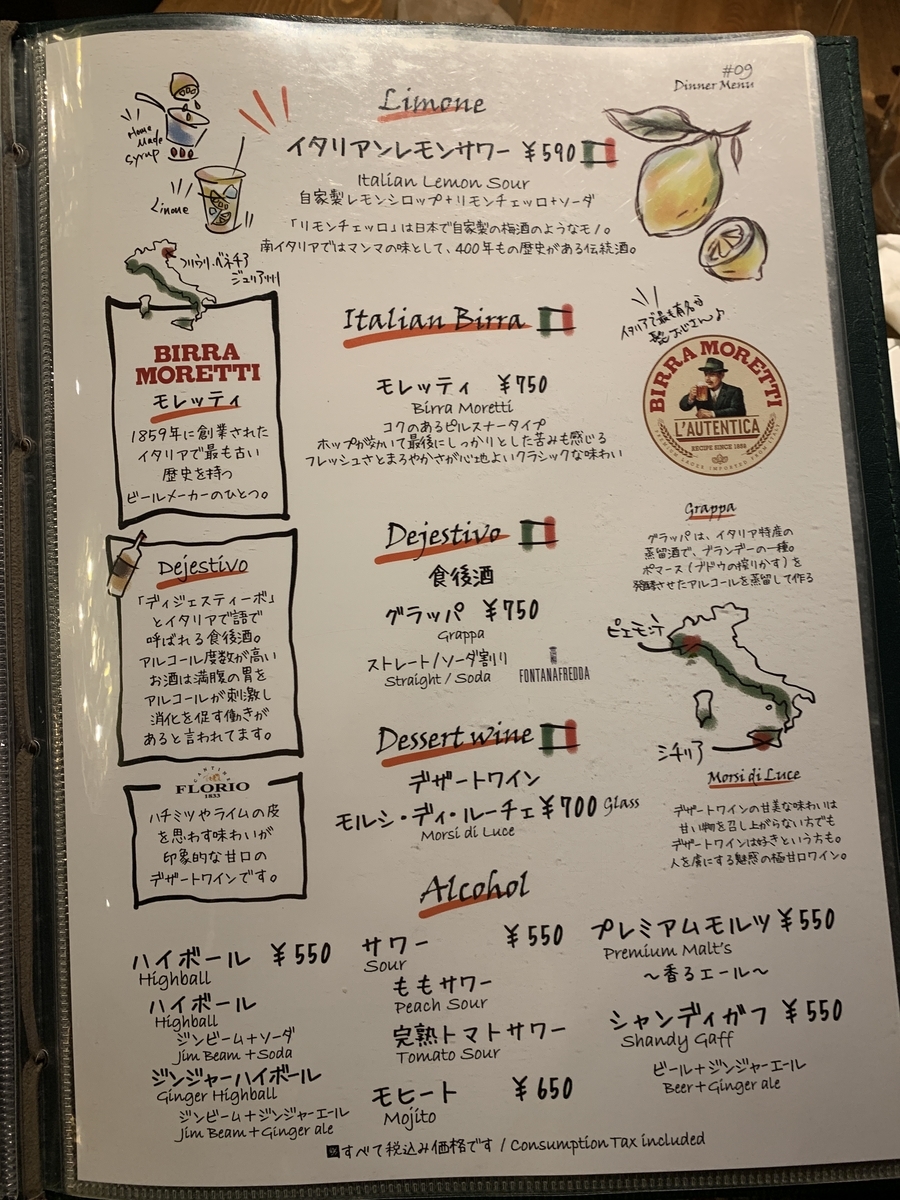 #09
Dinner Menu
Limone
Home
Made
Syrup
Limone
イタリアンレモンサワー ¥590
Italian Lemon Sour
自家製レモンシロップ+リモンチェッロ+ソーダ
「リモンチェッロ」は日本で自家製の梅酒のようなモノ。
南イタリアではマンマの味として、400年もの歴史がある伝統酒。
フリウリ・ベネチア
ジュリア州
BIRRA
MORETTI
モレッティ
1859年に創業された
イタリアで最も古い
歴史を持つ
ビールメーカーのひとつ。
Italian Birra
モレッティ ¥750
Birra Moretti
コクのあるピルスナータイプ
ホップが効いて最後にしっかりとした苦みも感じる
フレッシュさとまろやかさが心地よいクラシックな味わい
イタリアで最も有名な
おじさん♪
BIRRA MORETTI
L'AUTENTICA
RECIPE SINCE 1859
PREMIUM LAGER IMPORTED FROM ITALY
Dejestivo
「ディジェスティーボ」
とイタリアで語で
呼ばれる食後酒。
アルコール度数が高い
お酒は満腹の胃を
アルコールが刺激し
消化を促す働きが
あると言われてます。
Dejestivo
食後酒
グラッパ ¥750
Grappa
ストレート/ソーダ割り
Straight / Soda
FONTANAFREDDA
Grappa
グラッパは、イタリア特産の
蒸留酒で、ブランデーの一種。
ポマース(ブドウの搾りかす)を
発酵させたアルコールを蒸留して作る
ピエモンテ
シチリア
CANTINE
FLORIO
1833
ハチミツやライムの皮
を思わす味わいが
印象的な甘口の
デザートワインです。
Dessert wine
デザートワイン
モルシ・ディ・ルーチェ ¥700 Glass
Morsi di Luce
Morsi di Luce
デザートワインの甘美な味わいは
甘い物を召し上がらない方でも
デザートワインは好きという方も。
人を虜にする魅惑の極甘口ワイン。
Alcohol
ハイボール ¥550
Highball
ハイボール
Highball
ジンビーム+ソーダ
Jim Beam + Soda
ジンジャーハイボール
Ginger Highball
ジンビーム+ジンジャーエール
Jim Beam + Ginger ale
サワー ¥550
Sour
ももサワー
Peach Sour
完熟トマトサワー
Tomato Sour
モヒート ¥650
Mojito
プレミアムモルツ ¥550
Premium Malt's
〜香るエール〜
シャンディガフ ¥550
Shandy Gaff
ビール+ジンジャーエール
Beer + Ginger ale
すべて税込み価格です / Consumption Tax included